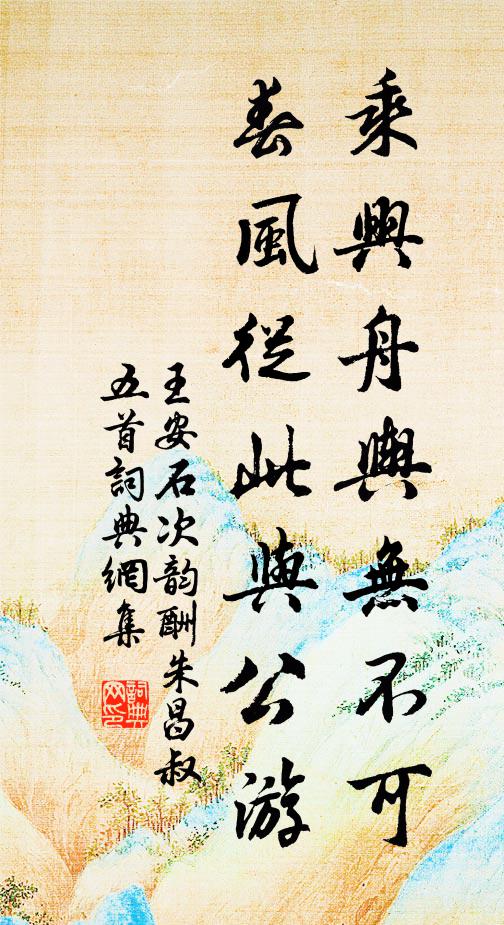 乘興舟輿無不可
春風從此與公游
王安石次韵酬朱昌叔
五首詞典網集
詞典
网